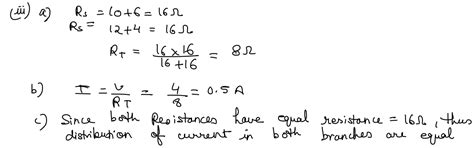 (iii) a) Rs = 10+6 = 16Ω
Rs = 12+4 = 16Ω
RT = 16×16 / 16+16 = 8Ω
b) I = V / RT = 4 / 8 = 0.5 A
c) Since both Resistances have equal resistance = 16Ω, thus
distribution of current in both branches are equal